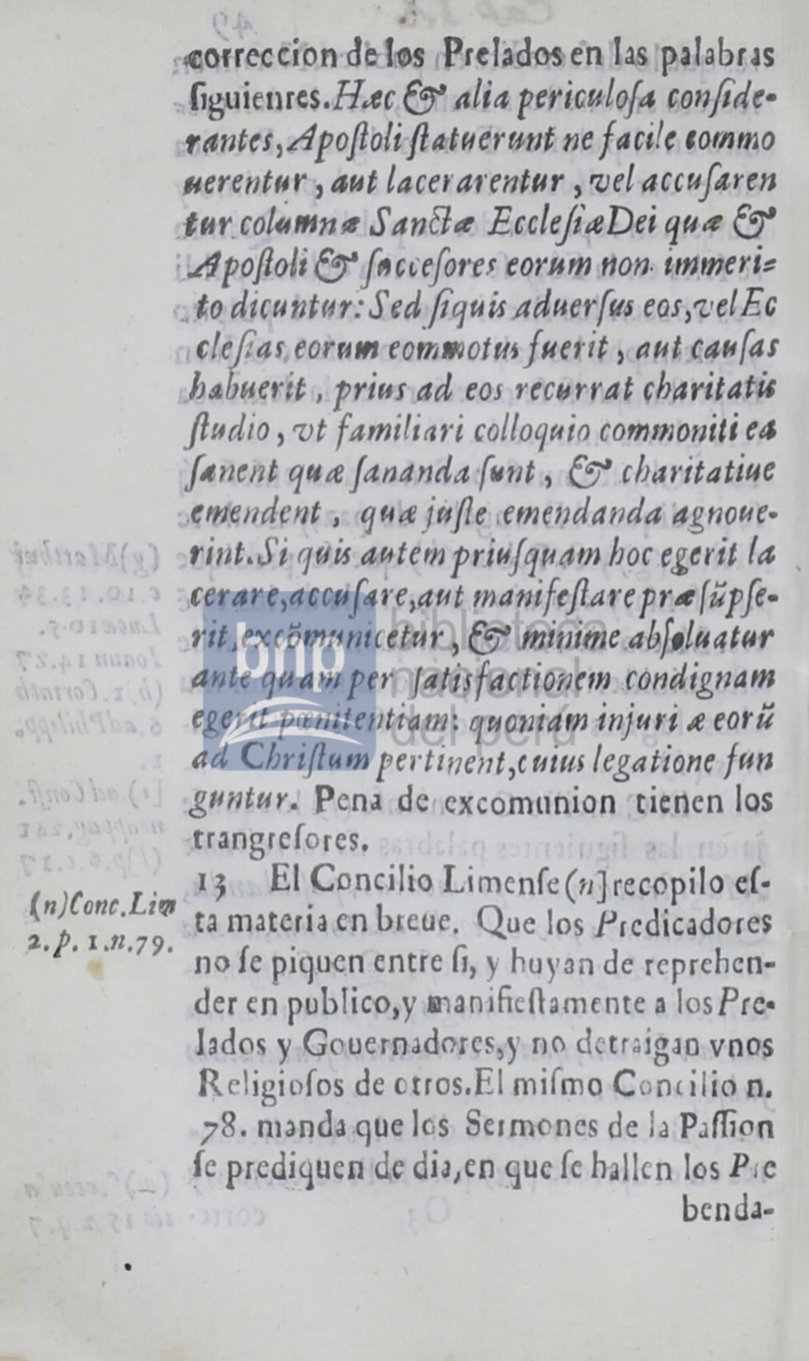 correccion de los Prelados en las palabras
ſiguienres. Hæc & alia periculoſa conſide-
rantes, Apoſtoli ſtatuerunt ne facile commo
uerentur, aut lacerarentur, vel accuſaren
tur columnæ Sanctæ Eccleſiæ Dei quæ &
Apoſtoli & ſucceſores eorum non immeri-
to dicuntur: Sed ſiquis aduerſus eos, vel Ec
cleſias eorum commotus fuerit, aut cauſas
habuerit, prius ad eos recurrat charitatis
ſtudio, vt familiari colloquio commoniti ea
ſanent quæ ſananda ſunt, & charitatiue
emendent, quæ juſte emendanda agnoue-
rint. Si quis autem priuſquam hoc egerit la
cerare, accuſare, aut manifeſtare præſũpſe-
rit, excõmunicetur, & minime abſoluatur
ante quam per ſatisfactionem condignam
egerit pœnitentiam: quoniam injuriæ eorũ
ad Chriſtum pertinent, cuius legatione fun
guntur. Pena de excomunion tienen los
trangreſores.
13 El Concilio Limenſe (n] recopilo eſ-
ta materia en breue. Que los Predicadores
no ſe piquen entre ſi, y huyan de reprehen-
der en publico, y manifieſtamente a los Pre-
lados y Gouernadores, y no detraigan vnos
Religioſos de otros. El miſmo Concilio n.
78. manda que los Sermones de la Paſſion
ſe prediquen de dia, en que ſe hallen los Pre
benda-
(n) Conc. Lim
2. p. 1. n. 79.
bnp
biblioteca
nacional
del perú